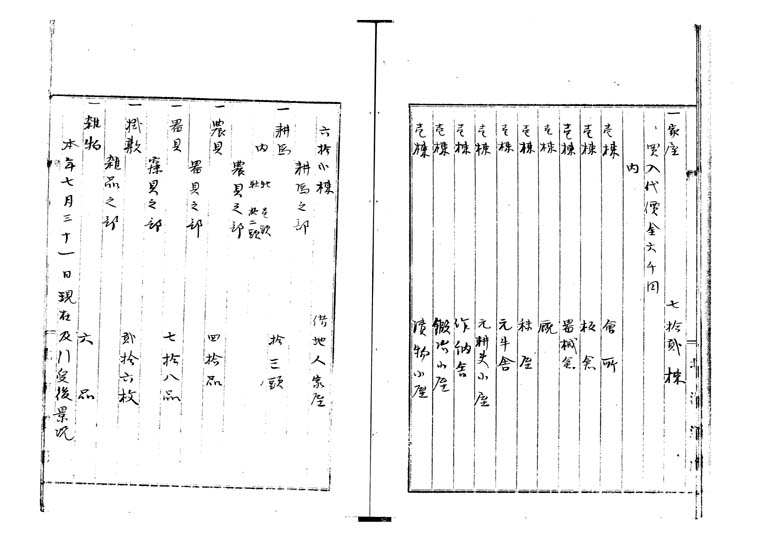 一家屋 七拾弐棟
買入代價金六千円
内
壱棟 會所
壱棟 板倉
壱棟 器械舎
壱棟 厩
壱棟 秣屋
壱棟 元牛舎
壱棟 元耕夫小屋
壱棟 作納舎
壱棟 鍛冶小屋
壱棟 漬物小屋
六拾小棟 借地人家屋
耕馬之部
一耕馬 拾三頭
内
農具之部
一農具 四拾品
器具之部
一器具 七拾八品
寝具之部
一掛敷 弐拾六枚
雑品之部
一雑物 六品
本年七月三十一日現在及引受後景况